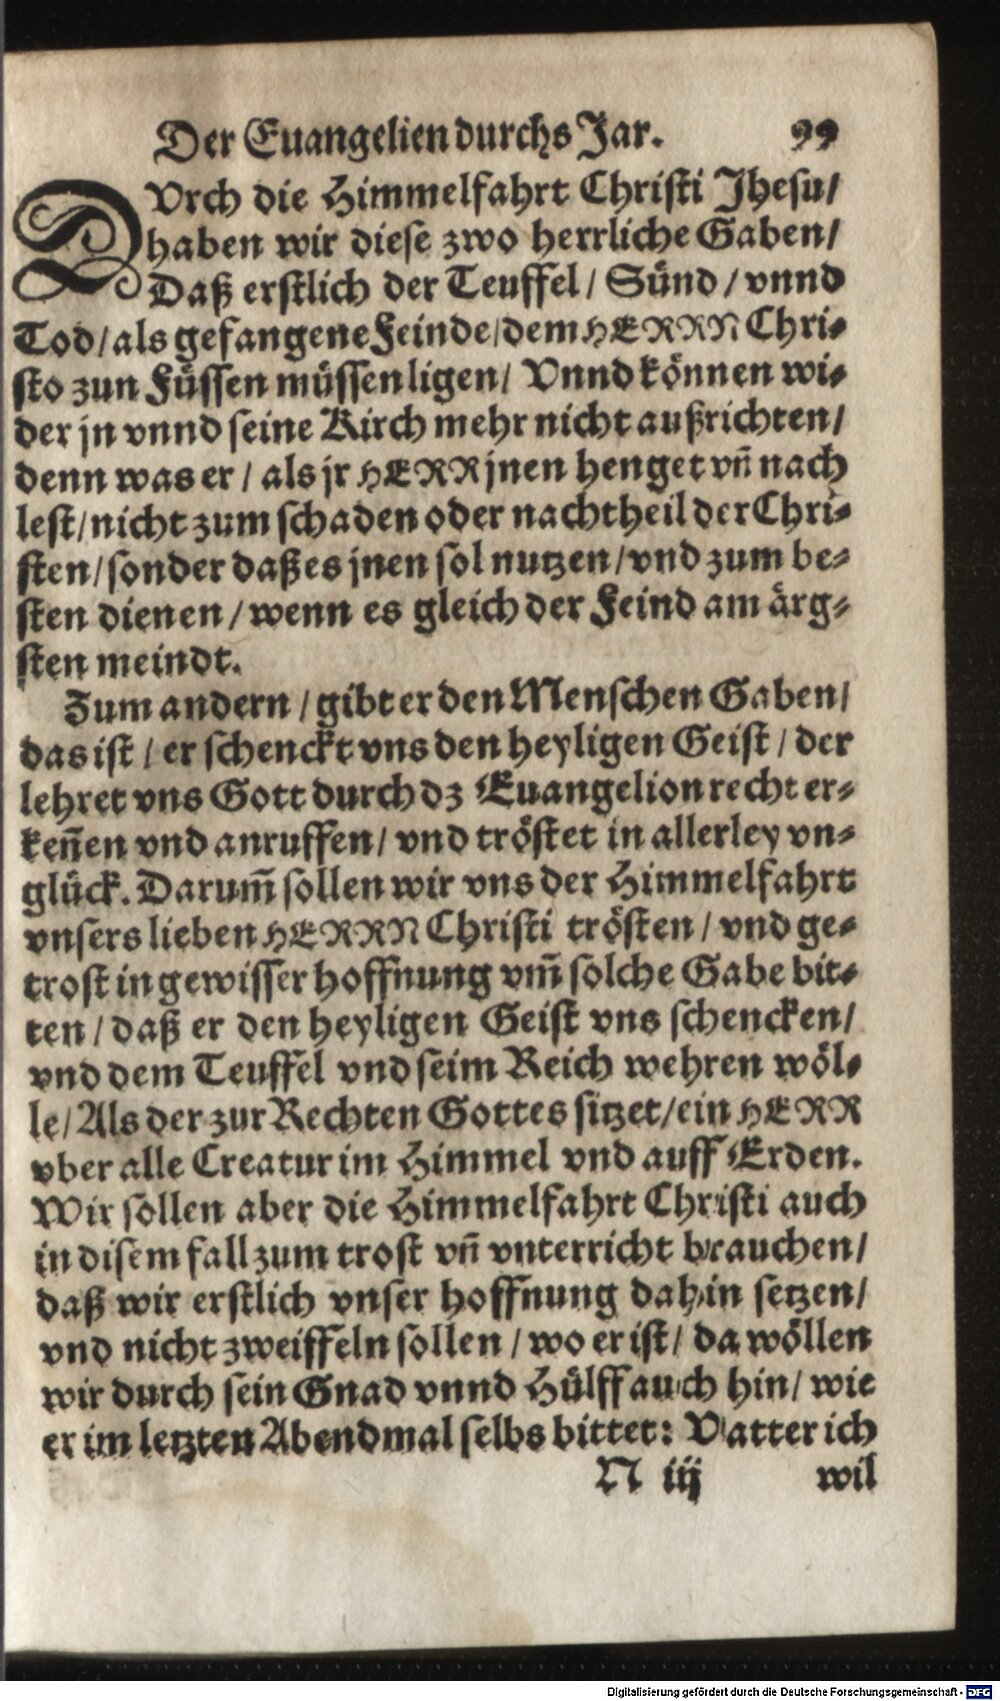 Der Euangelien durchs Jar. 99
DVrch die Himmelfahrt Christi Jhesu/
haben wir diese zwo herrliche Gaben/
Daß erstlich der Teuffel/ Sünd/ vnnd
Tod/ als gefangene Feinde/ dem HERRN Chri-
sto zun Füssen müssen ligen/ Vnnd können wi-
der jn vnnd seine Kirch mehr nicht außrichten/
denn was er/ als jr HERR jnen henget vñ nach
lest/ nicht zum schaden oder nachtheil der Chri-
sten/ sonder daß es jnen sol nutzen/ vnd zum be-
sten dienen/ wenn es gleich der Feind am ärg-
sten meindt.
Zum andern/ gibt er den Menschen Gaben/
das ist/ er schenckt vns den heyligen Geist/ der
lehret vns Gott durch dz Euangelion recht er-
keñen vnd anruffen/ vnd tröstet in allerley vn-
glück. Darum̃ sollen wir vns der Himmelfahrt
vnsers lieben HERRN Christi trösten/ vnd ge-
trost in gewisser hoffnung vm̃ solche Gabe bit-
ten/ daß er den heyligen Geist vns schencken/
vnd dem Teuffel vnd seim Reich wehren wöl-
le/ Als der zur Rechten Gottes sitzet/ ein HERR
vber alle Creatur im Himmel vnd auff Erden.
Wir sollen aber die Himmelfahrt Christi auch
in disem fall zum trost vñ vnterricht brauchen/
daß wir erstlich vnser hoffnung dahin setzen/
vnd nicht zweiffeln sollen/ wo er ist/ da wöllen
wir durch sein Gnad vnnd Hülff auch hin/ wie
er im letzten Abendmal selbs bittet: Vatter ich
N iij wil
Digitalisierung gefördert durch die Deutsche Forschungsgemeinschaft - DFG